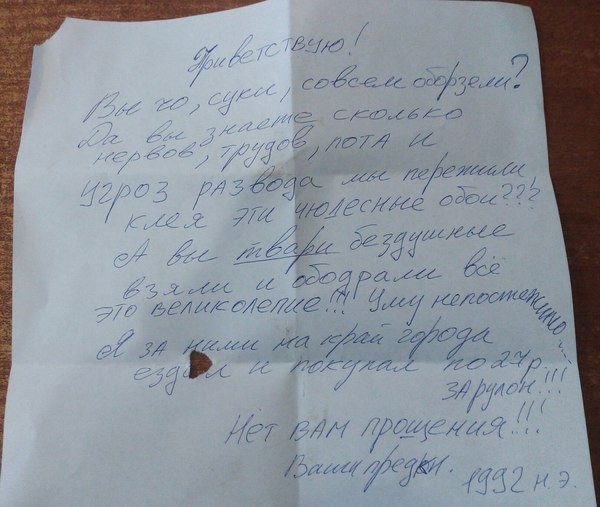 Приветствую!
Вы чо, суки, совсем оборзели?
Да вы знаете сколько
нервов, трудов, пота и
угроз развода мы пережили
клея эти чюдесные обои???
А вы твари бездушные
взяли и ободрали всё
это великолепие!!! Уму непостежимо...
Я за ними на край города
ездил и покупал по 27р.
за рулон!!!
Нет вам прощения!!!
Ваши предки.
1992 н.э.